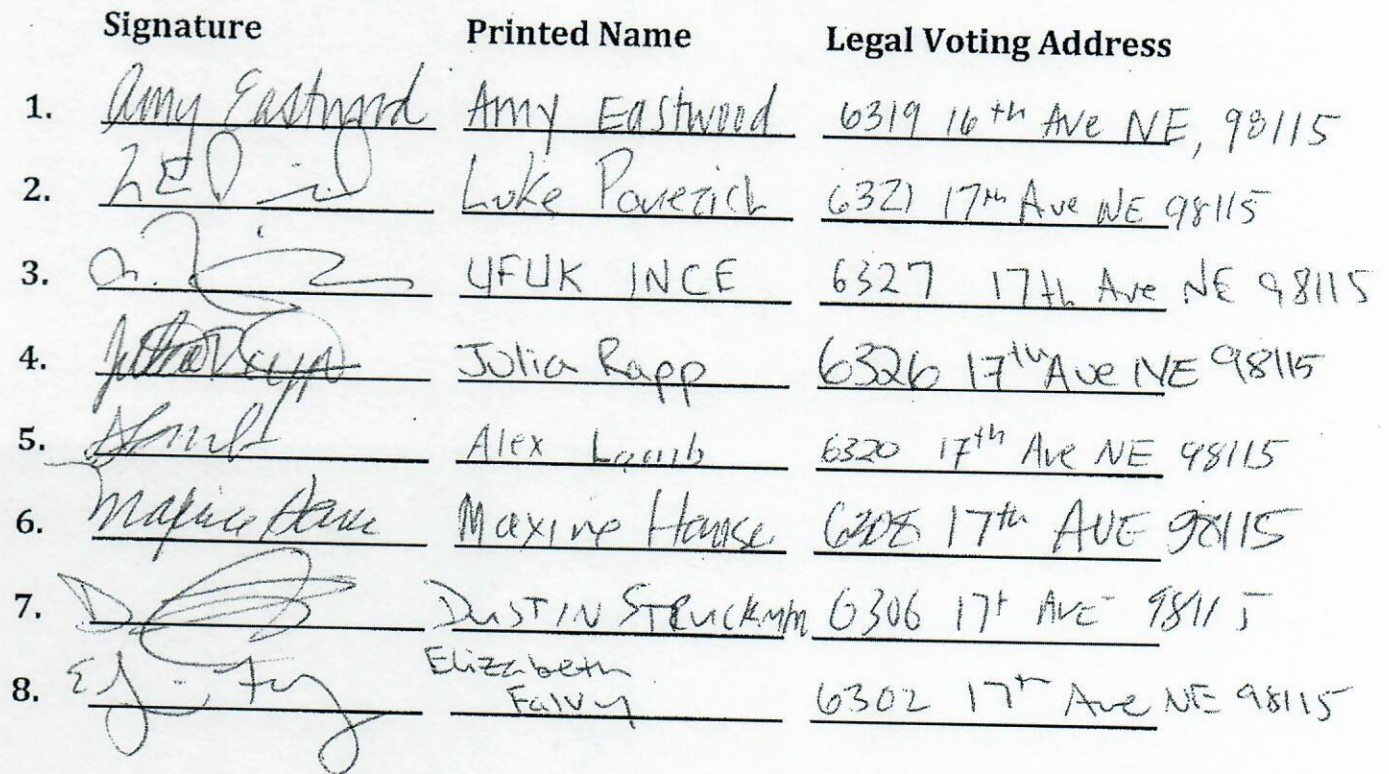 Signature Printed Name Legal Voting Address
1. Amy Eastwood Amy Eastwood 6319 16th Ave NE, 98115
2. Luke 6321 17th Ave NE 98115
3. UFUK INCE 6327 17th Ave NE 98115
4. Julia Rapp Julia Rapp 6326 17th Ave NE 98115
5. Alex Lamb 6320 17th Ave NE 98115
6. Maxine 17th AVE 98115
7. DUSTIN 6306 17t AVE 98115
8. Elizabeth
Falvy 6302 17th Ave NE 98115